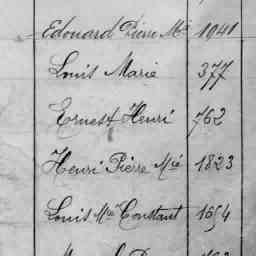 Edouard Pierre Mie 1941
Louis Marie 377
Ernest Henri 762
Henri Pierre Mié 1823
Louis Mie Constant 1654